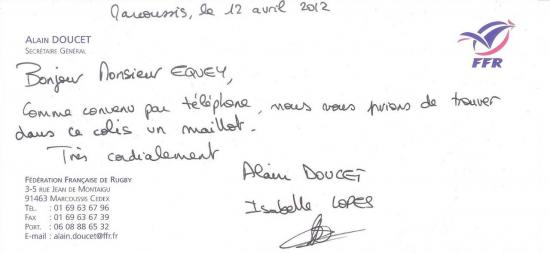 Marcoussis, le 12 avril 2012
ALAIN DOUCET
SECRÉTAIRE GÉNÉRAL
FFR
Bonjour Monsieur EQUEY,
Comme convenu par téléphone, nous vous prions de trouver
dans ce colis un maillot.
Très cordialement
Alain DOUCET
Isabelle LOPES
FÉDÉRATION FRANÇAISE DE RUGBY
3-5 RUE JEAN DE MONTAIGU
91463 MARCOUSSIS CEDEX
TÉL. : 01 69 63 67 96
FAX : 01 69 63 67 39
PORT. : 06 08 88 65 32
E-mail : alain.doucet@ffr.fr